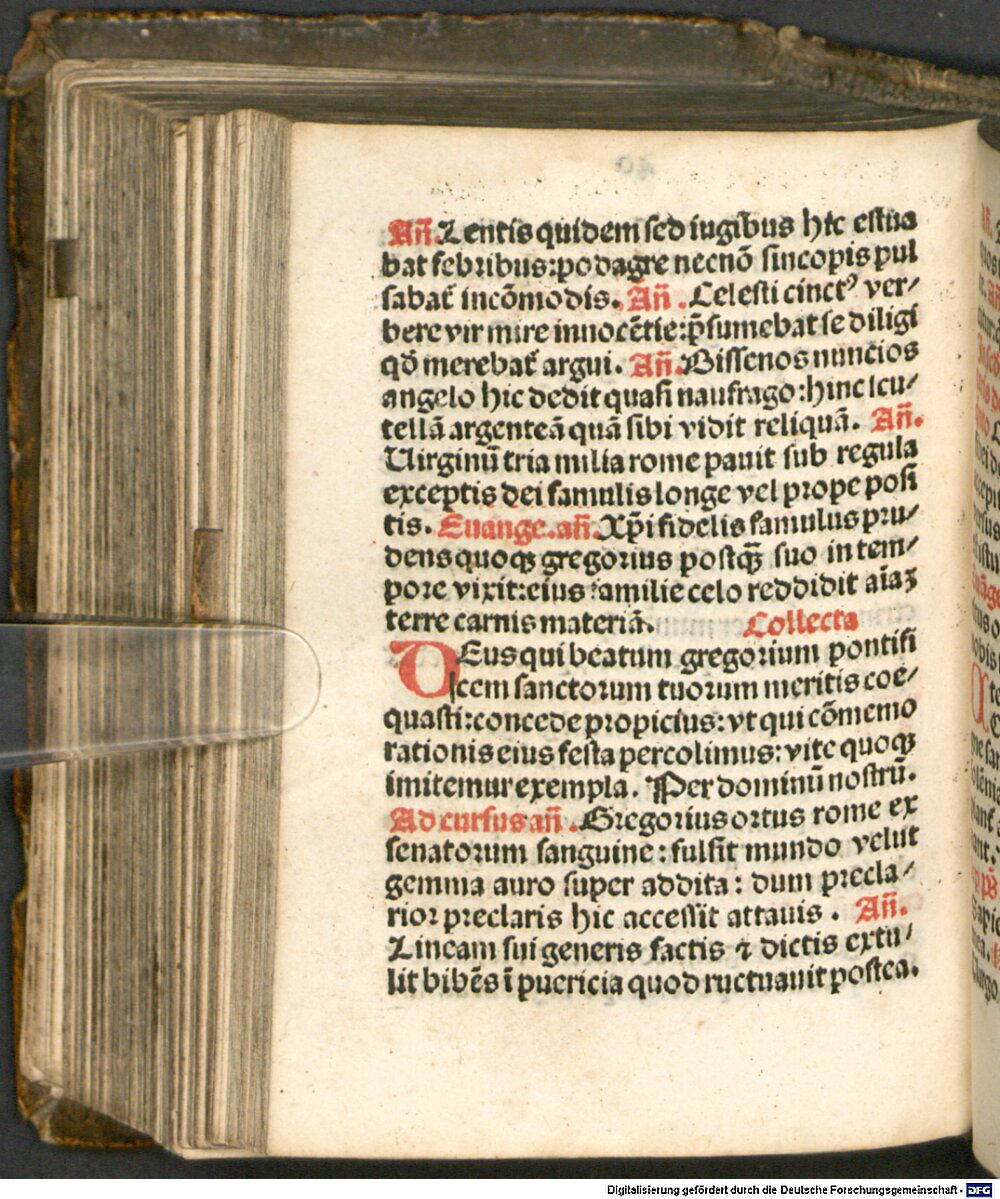 Añ. Lentis quidem sed iugibus hic estua
bat febribus: podagre necnō sincopis pul
sabat̄ incōmodis. Añ. Celesti cinctꝰ ver⸗
bere vir mire innocētie: p̄sumebat se diligi
qđ merebat̄ argui. Añ. Bissenos nuncios
angelo hic dedit quasi naufrago: hinc scu⸗
tellā argenteā quā sibi vidit reliquā. Añ.
Uirginū tria milia rome pauit sub regula
exceptis dei famulis longe vel prope posi
tis. Euange. añ. Xp̄i fidelis famulus pru⸗
dens quoqꝫ gregorius postqꝫ̄ suo in tem⸗
pore vixit: eius familie celo reddidit aīaꝫ
terre carnis materiā. Collecta
DEus qui beatum gregorium pontifi
cem sanctorum tuorum meritis coe⸗
quasti: concede propicius: vt qui cōmemo
rationis eius festa percolimus: vite quoqꝫ
imitemur exempla. Per dominū nostrū.
Ad cursus añ. Gregorius ortus rome ex
senatorum sanguine: fulsit mundo velut
gemma auro super addita: dum precla⸗
rior preclaris hic accessit attauis. Añ.
Lineam sui generis factis ⁊ dictis extu⸗
lit bibēs ī puericia quod ructuauit postea.
Digitalisierung gefördert durch die Deutsche Forschungsgemeinschaft - DFG